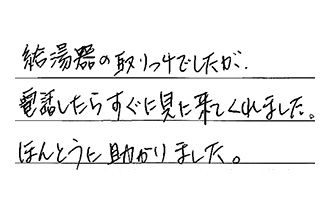 給湯器の取りつけでしたが、
電話したらすぐに見に来てくれました。
ほんとうに助かりました。